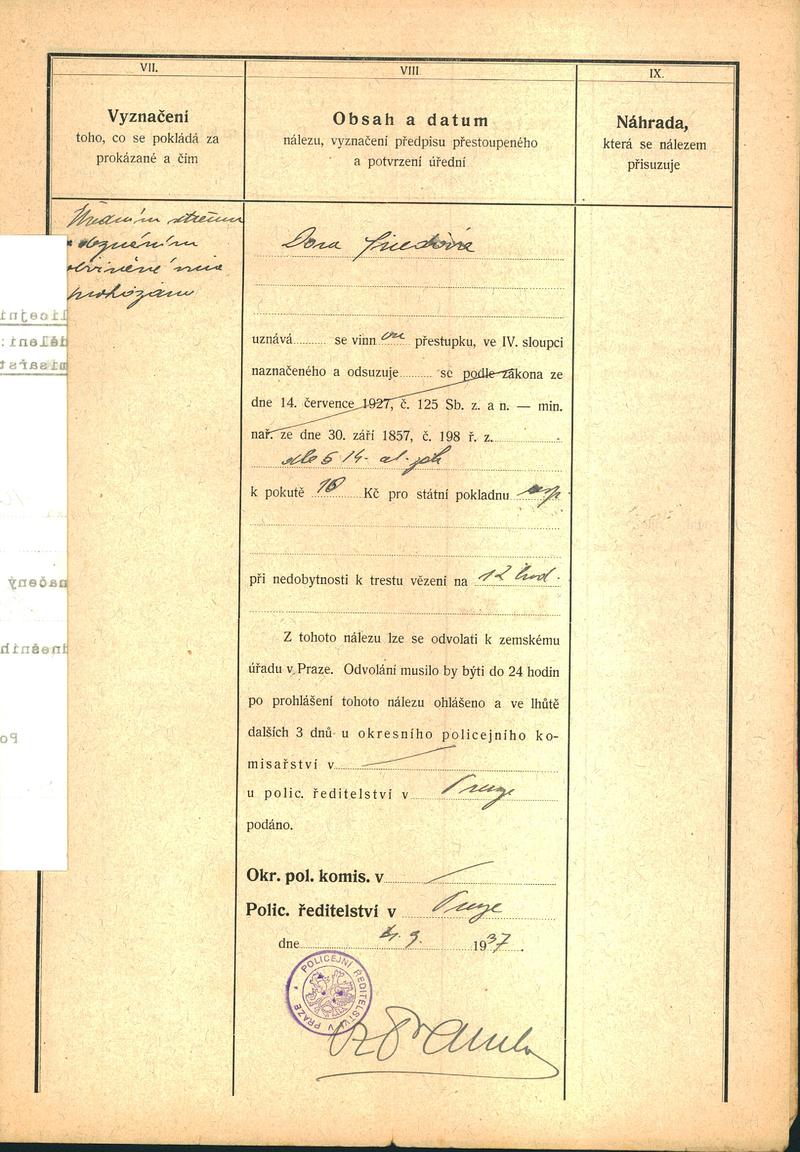 VII.
Vyznačení
toho, co se pokládá za
prokázané a čím
Úředním
doznáním
obviněné
prokázáno
VIII
Obsah a datum
nálezu, vyznačení předpisu přestoupeného
a potvrzení úřední
Dora
uznává.......... se vinn ou přestupku, ve IV. sloupci
naznačeného a odsuzuje.......... se podle zákona ze
dne 14. července 1927, č. 125 Sb. z. a n. — min.
nař. ze dne 30. září 1857, č. 198 ř. z.
dle § 14.
k pokutě 10 Kč pro státní pokladnu
při nedobytnosti k trestu vězení na 12 hod.
Z tohoto nálezu lze se odvolati k zemskému
úřadu v Praze. Odvolání musilo by býti do 24 hodin
po prohlášení tohoto nálezu ohlášeno a ve lhůtě
dalších 3 dnů u okresního policejního ko-
misařství v
u polic. ředitelství v Praze
podáno.
Okr. pol. komis. v
Polic. ředitelství v Praze
dne 9. 1937.
POLICEJNÍ ŘEDITELSTVÍ V PRAZE
IX.
Náhrada,
která se nálezem
přisuzuje